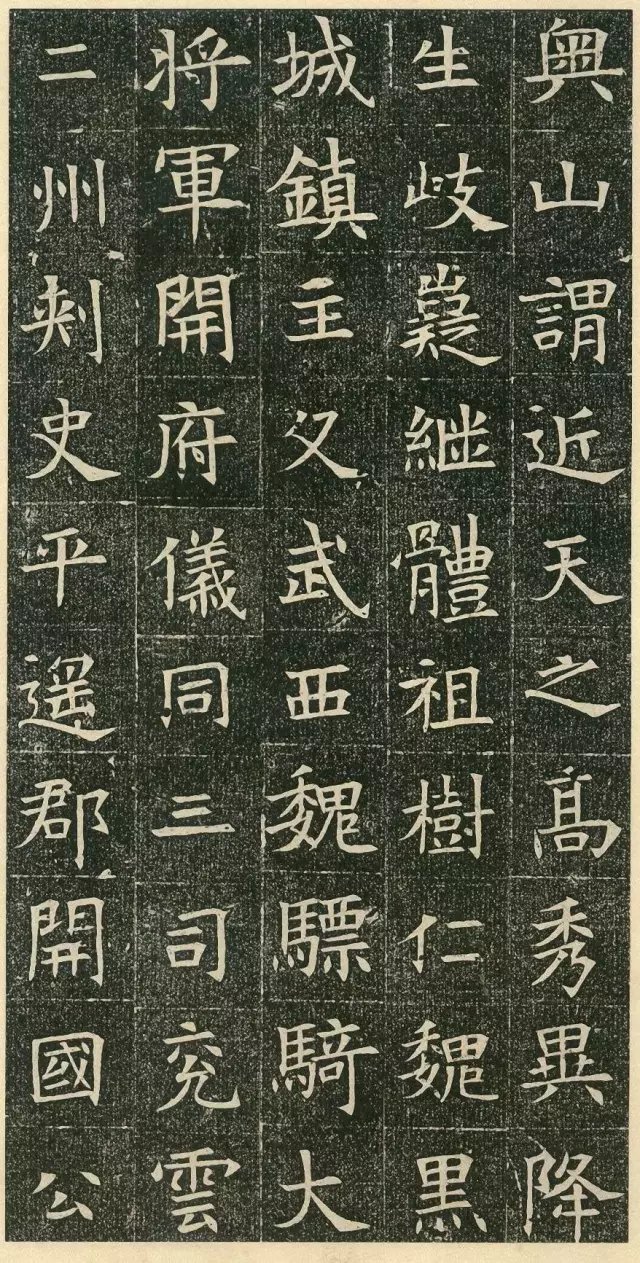 輿山謂近天之高秀異降
生歧嶷繼體祖樹仁魏黑
城鎮主父武西魏驃騎大
將軍開府儀同三司兖雲
二州刺史平遥郡開國公